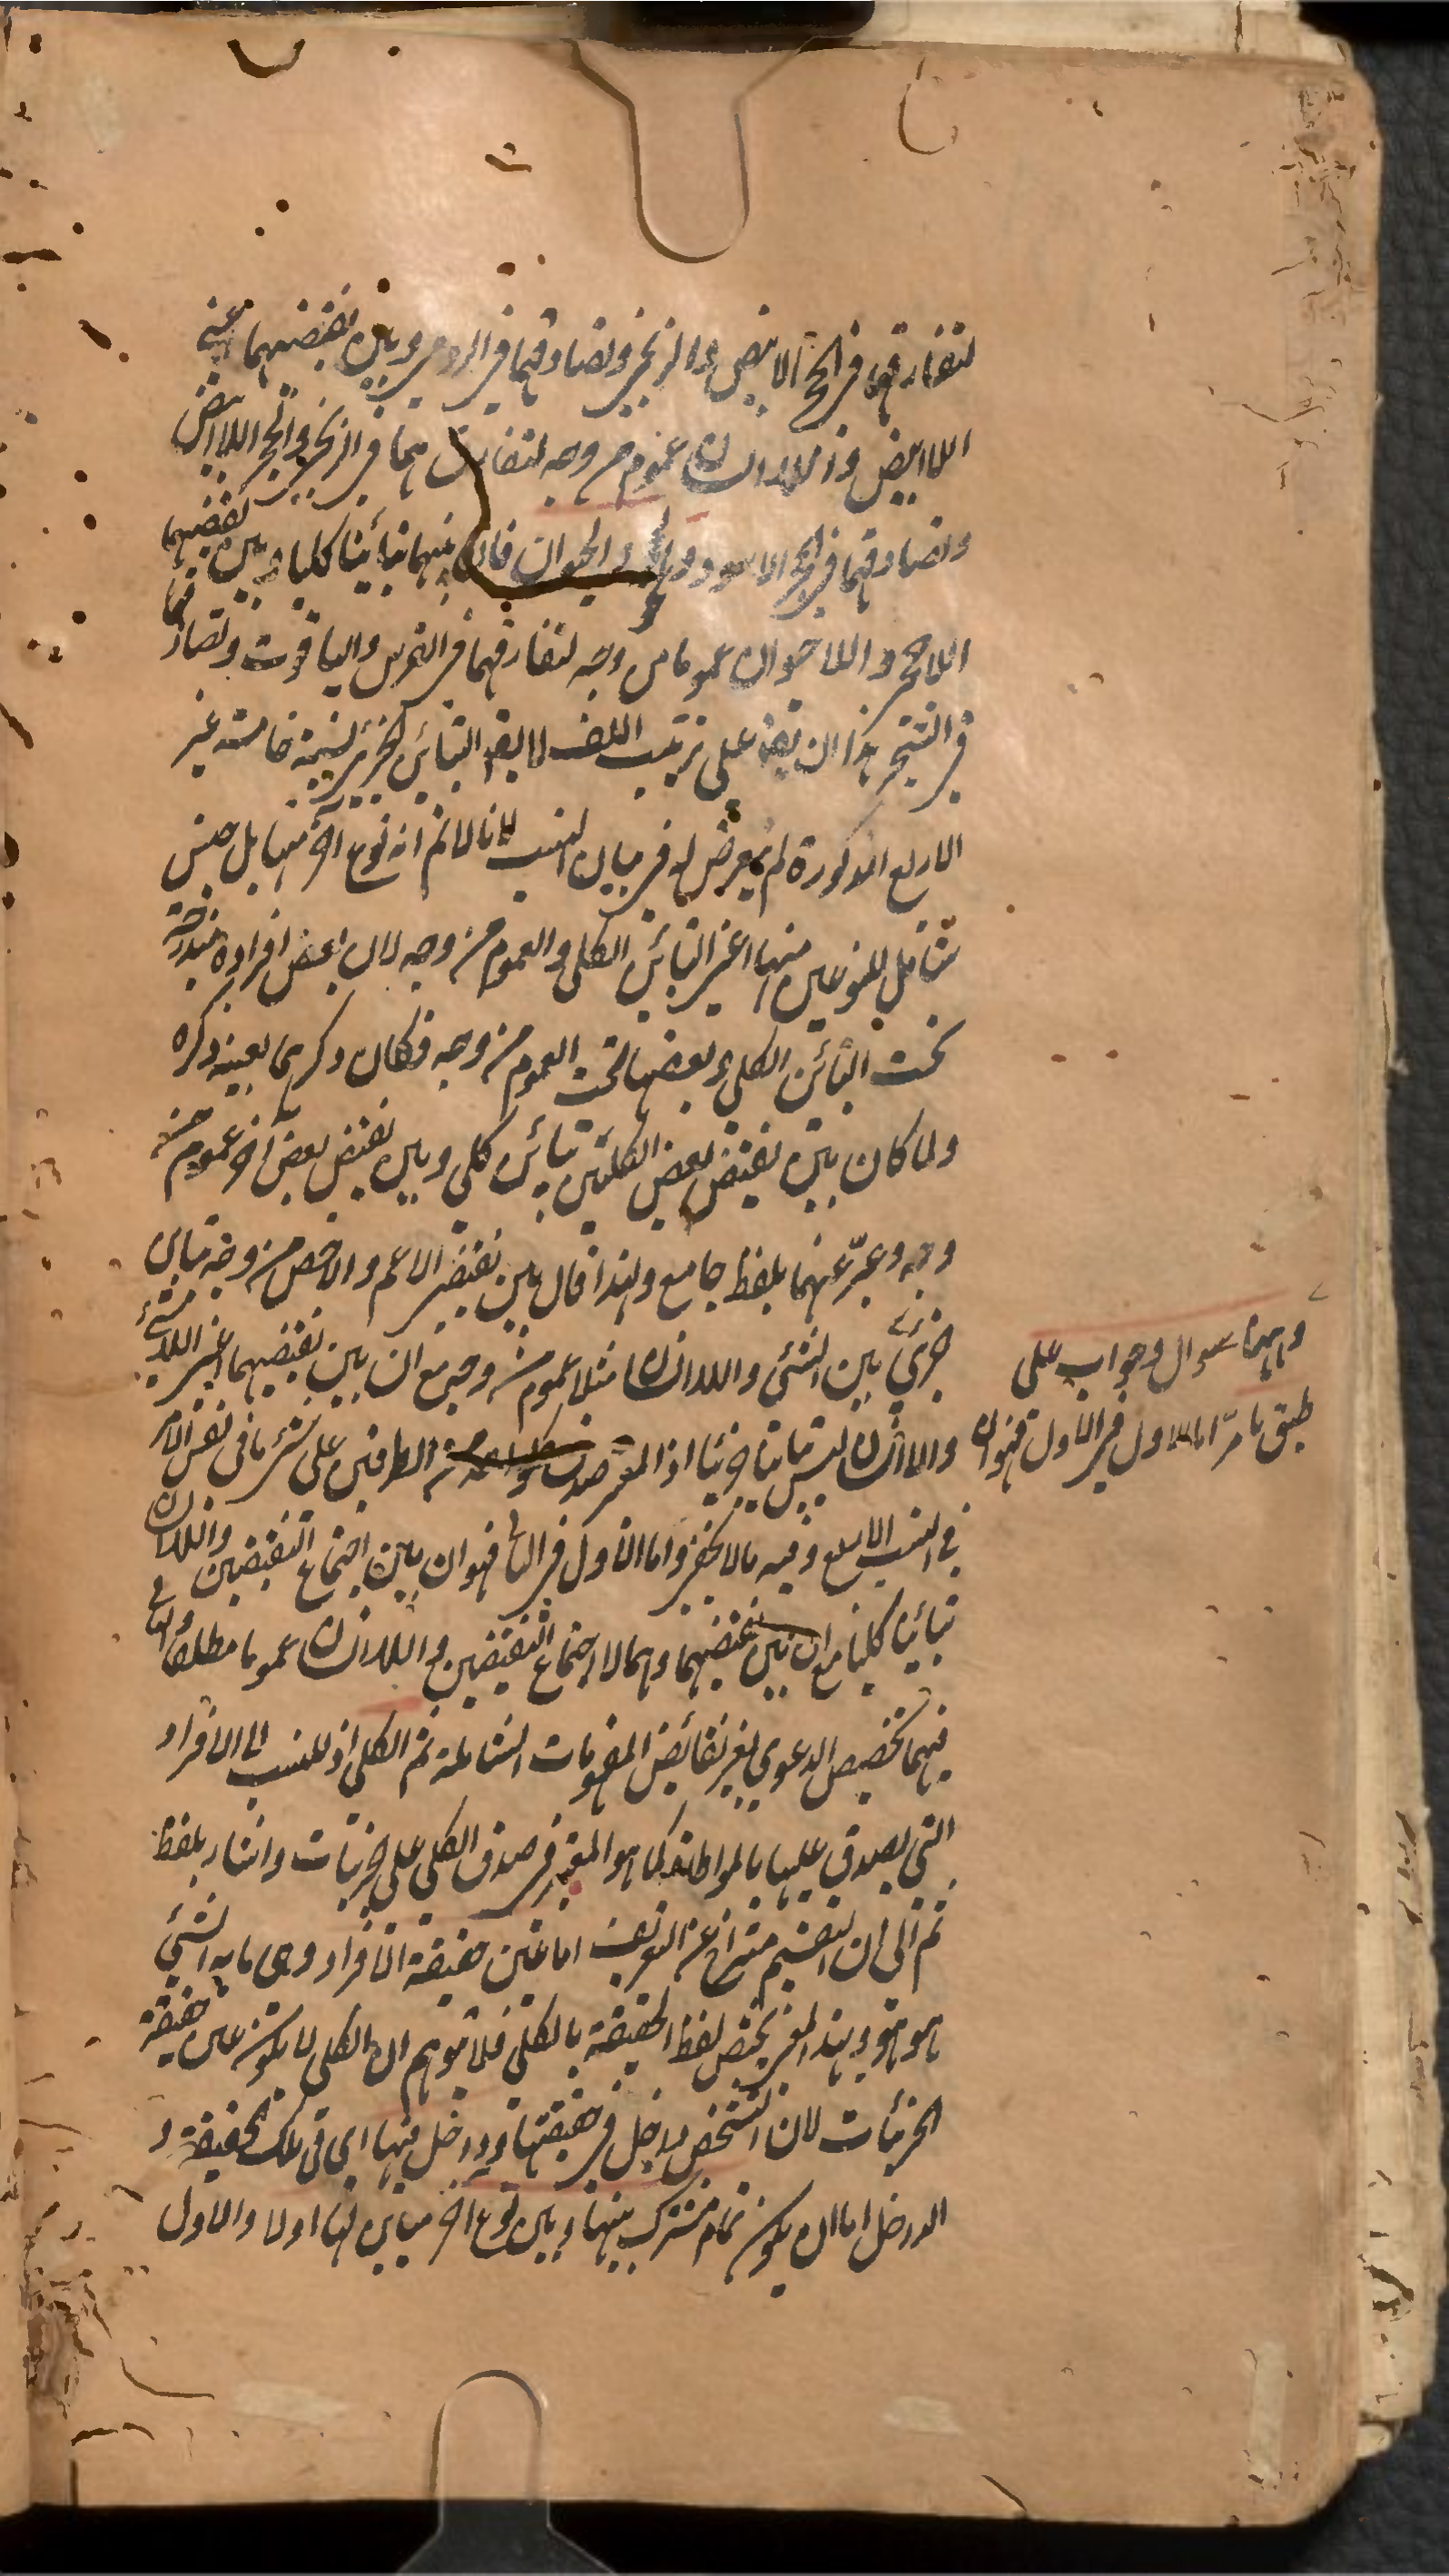 لتفارقهما في الحجر الابيض والزنجي وتصادقهما في الرومي وبين نقيضيهما اعني
اللاابيض واللاانسان عموم من وجه لتفارقهما في الزنجي والحجر اللاابيض
وتصادقهما في الحجر الاسود و والحيوان فان بينهما تباينا كليا وبين نقيضيهما
اللاحجر واللاحيوان عموما من وجه لتفارقهما في الفرس والياقوت وتصادقهما
في الشجر هذا على ترتيب اللف لا يقال التباين الجزئي نسبة خامسة غير
الاربع المذكورة لم يتعرض له في بيان النسب لانا لا نم انه نوع آخر منها بل جنس
شامل للنوعين منها اعني التبائن الكلي والعموم من وجه لان بعض افراده مندرجة
تحت التبائن الكلي وبعضها تحت العموم من وجه فكان ذكرهما بعينه ذكره
ولما كان بين نقيض بعض الكليين تبائن كلي وبين نقيض بعض آخر عموم من
وجه وعبر عنهما بلفظ جامع ولهذا قال بين نقيضي الاعم والاخص من وجه تباين
جزئي بين الشئ واللاانسان مثلا عموم من وجه مع ان بين نقيضيهما اعني اللاشئ
والانسان ليس تباينا جزئيا اذ المعتبر صدق الطرفين على شئ ما في نفس الامر
في النسب الاربع وفيه ما لا يخفى واما الاول في الثاني فهو ان بين اجتماع النقيضين واللاانسان
تباينا كليا مع ان بين نقيضيهما وهما لا اجتماع النقيضين والانسان عموما مطلقا والثاني
فيهما تخصيص الدعوي بغير نقائض المفهومات الشاملة ثم الكلي اذ للنسب الى الافراد
التي يصدق عليها بالمواطاة كما هو المعتبر في صدق الكلي على جزئيات واشار بلفظ
ثم الى ان التقسيم متراخ عن التعريف اما عين حقيقة الافراد وهي ما به الشئ
هو هو وبهذا المعنى يختص لفظ الحقيقة بالكلي فلا يتوهم ان الكلي لا يكون عين حقيقة
الجزئيات لان التشخص داخل في حقيقتها او داخل فيها اي في تلك الحقيقة و
الداخل اما ان يكون تمام مشترك بينها وبين نوع آخر مباين لها اولا والاول
وههنا سوال وجواب على
طبق ما مر اما الاول في الاول فهو ان